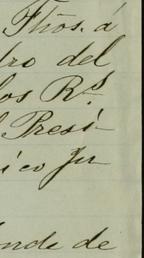 Fhos. á
dro del
los R.s
l Presi
ico Ju
nde de